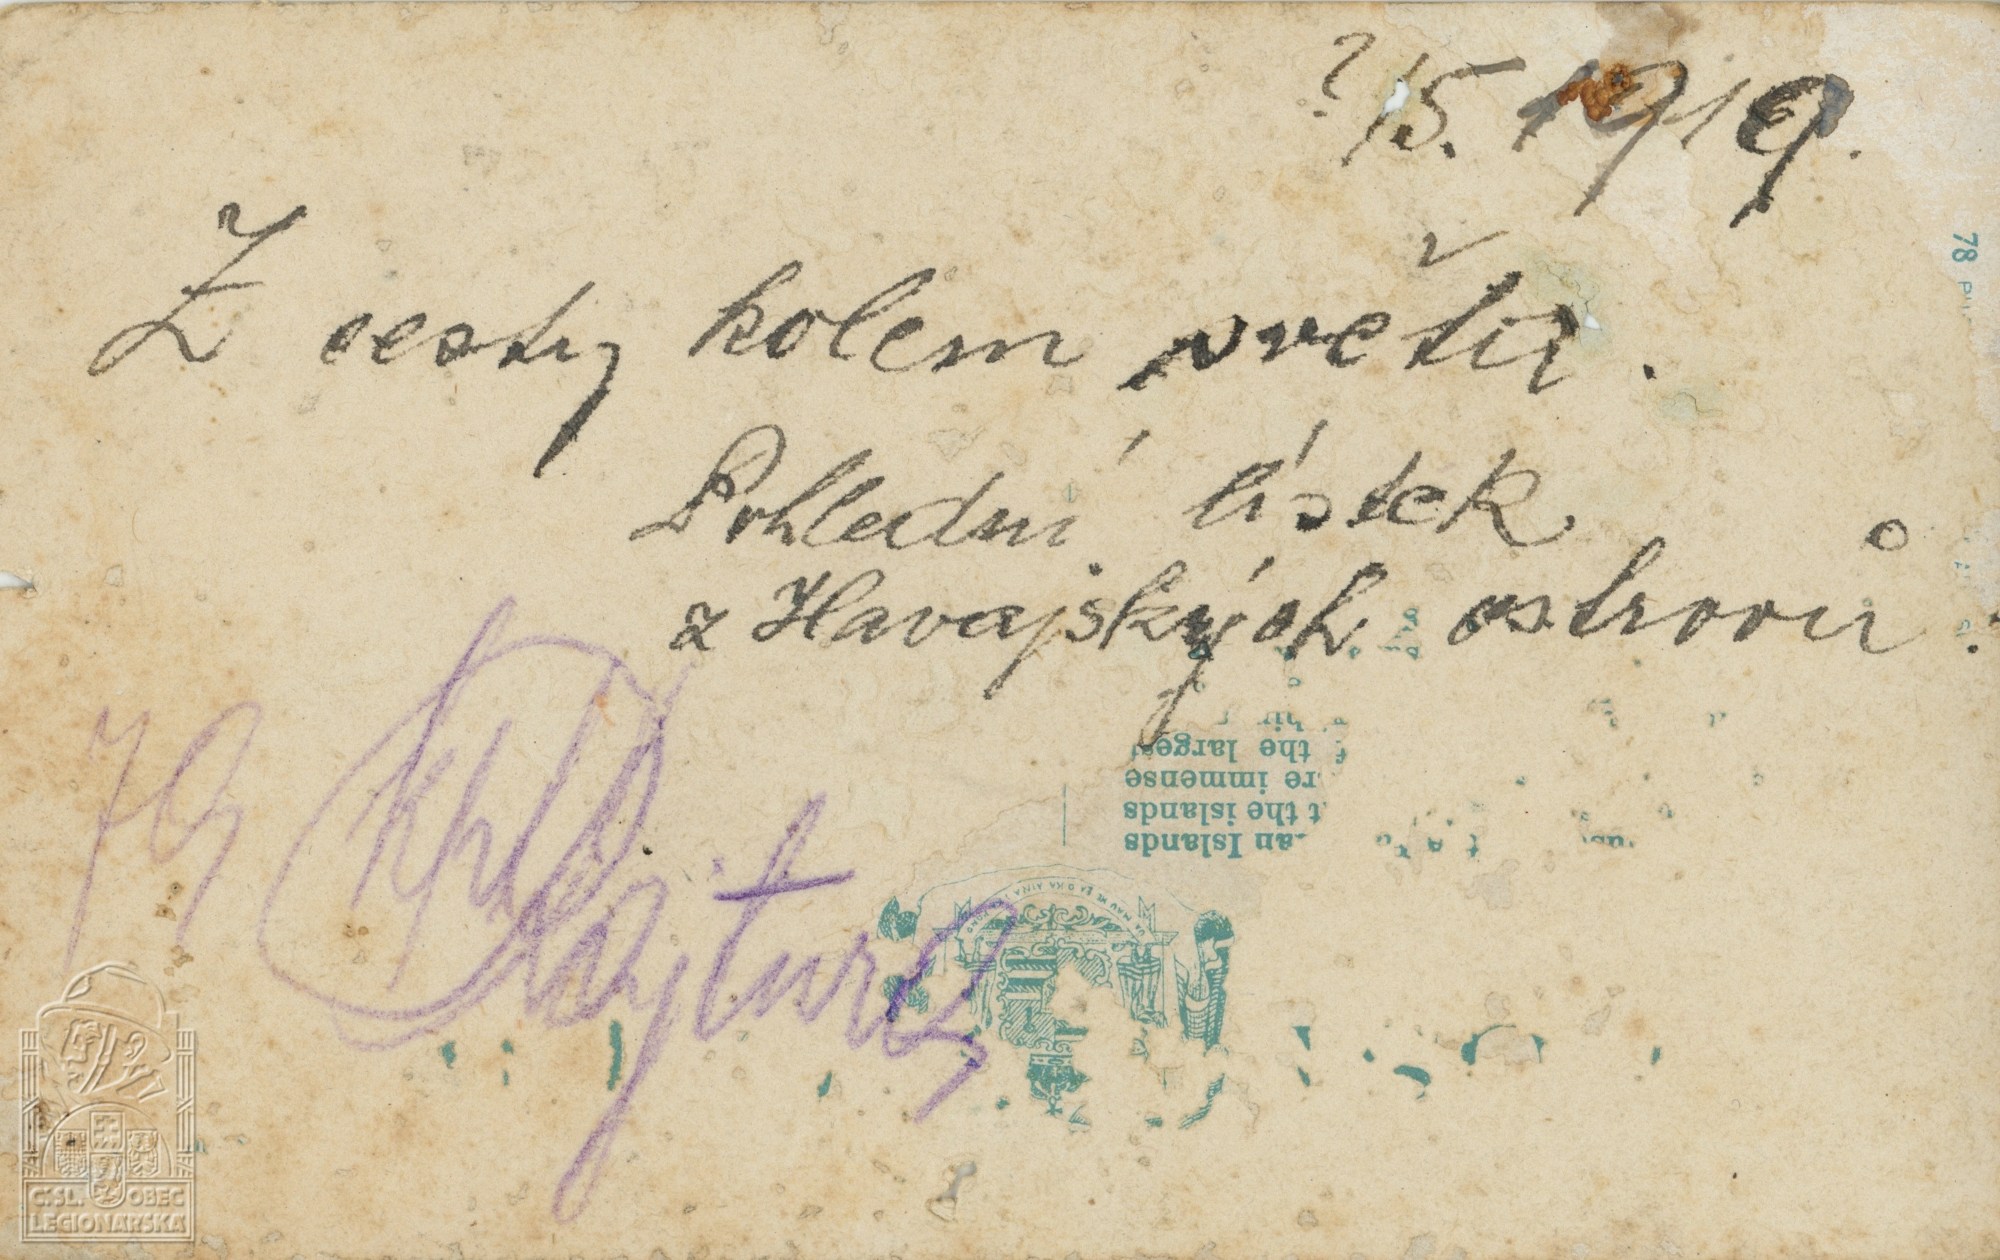 ? 15. 1919.
Z cesty kolem světa.
Pohlední lístek
z Havajských ostrovů.
79
78
the larges
re immense
t the islands
an Islands
ČSL. OBEC
LEGIONÁŘSKÁ